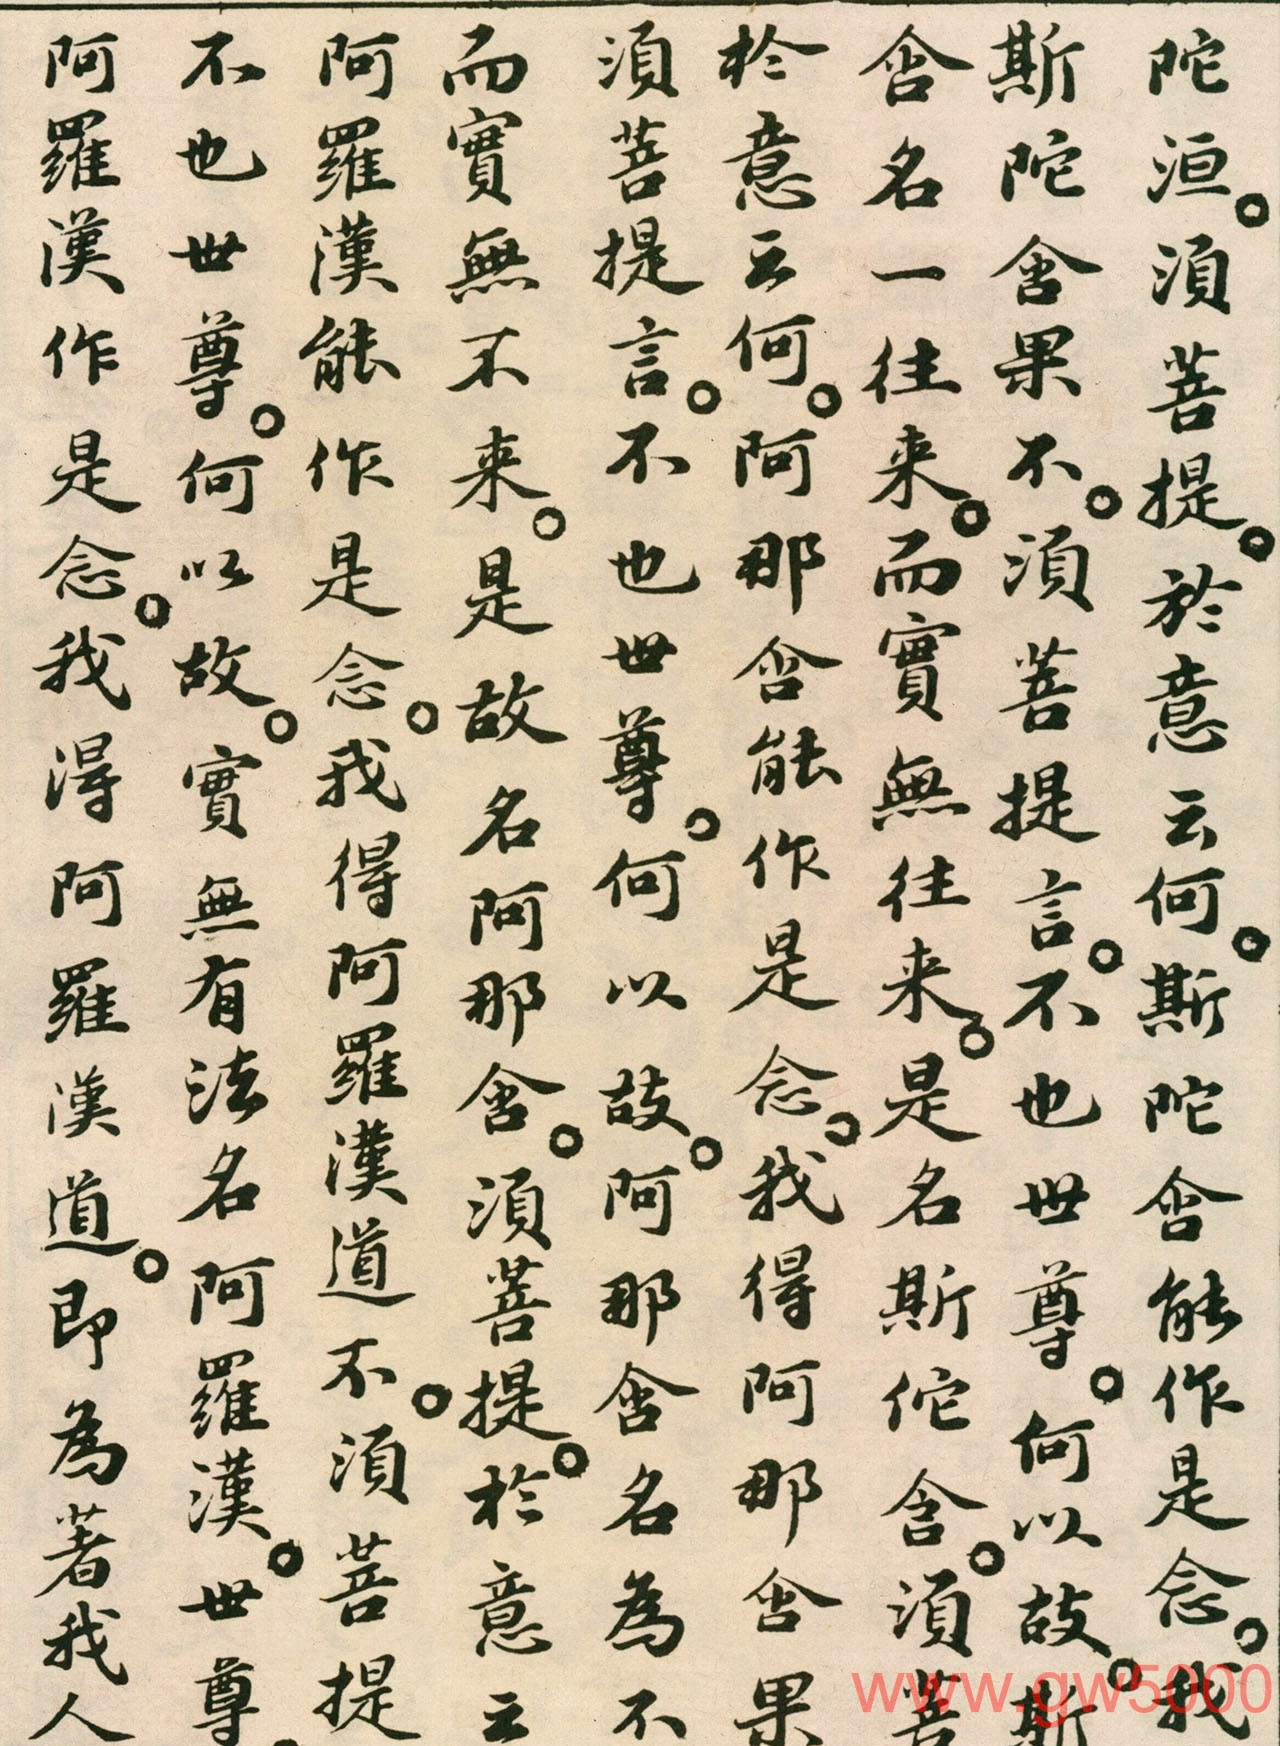 陀洹。須菩提。於意云何。斯陀含能作是念。我
斯陀含果不。須菩提言。不也世尊。何以故。斯
含名一往来。而實無往来。是名斯佗含。須菩
於意云何。阿那含能作是念。我得阿那含果
須菩提言。不也世尊。何以故。阿那含名為不
而實無不来。是故名阿那含。須菩提。於意云
阿羅漢能作是念。我得阿羅漢道不。須菩提
不也世尊。何以故。實無有法名阿羅漢。世尊。
阿羅漢作是念。我得阿羅漢道。即為著我人
www.gw5000